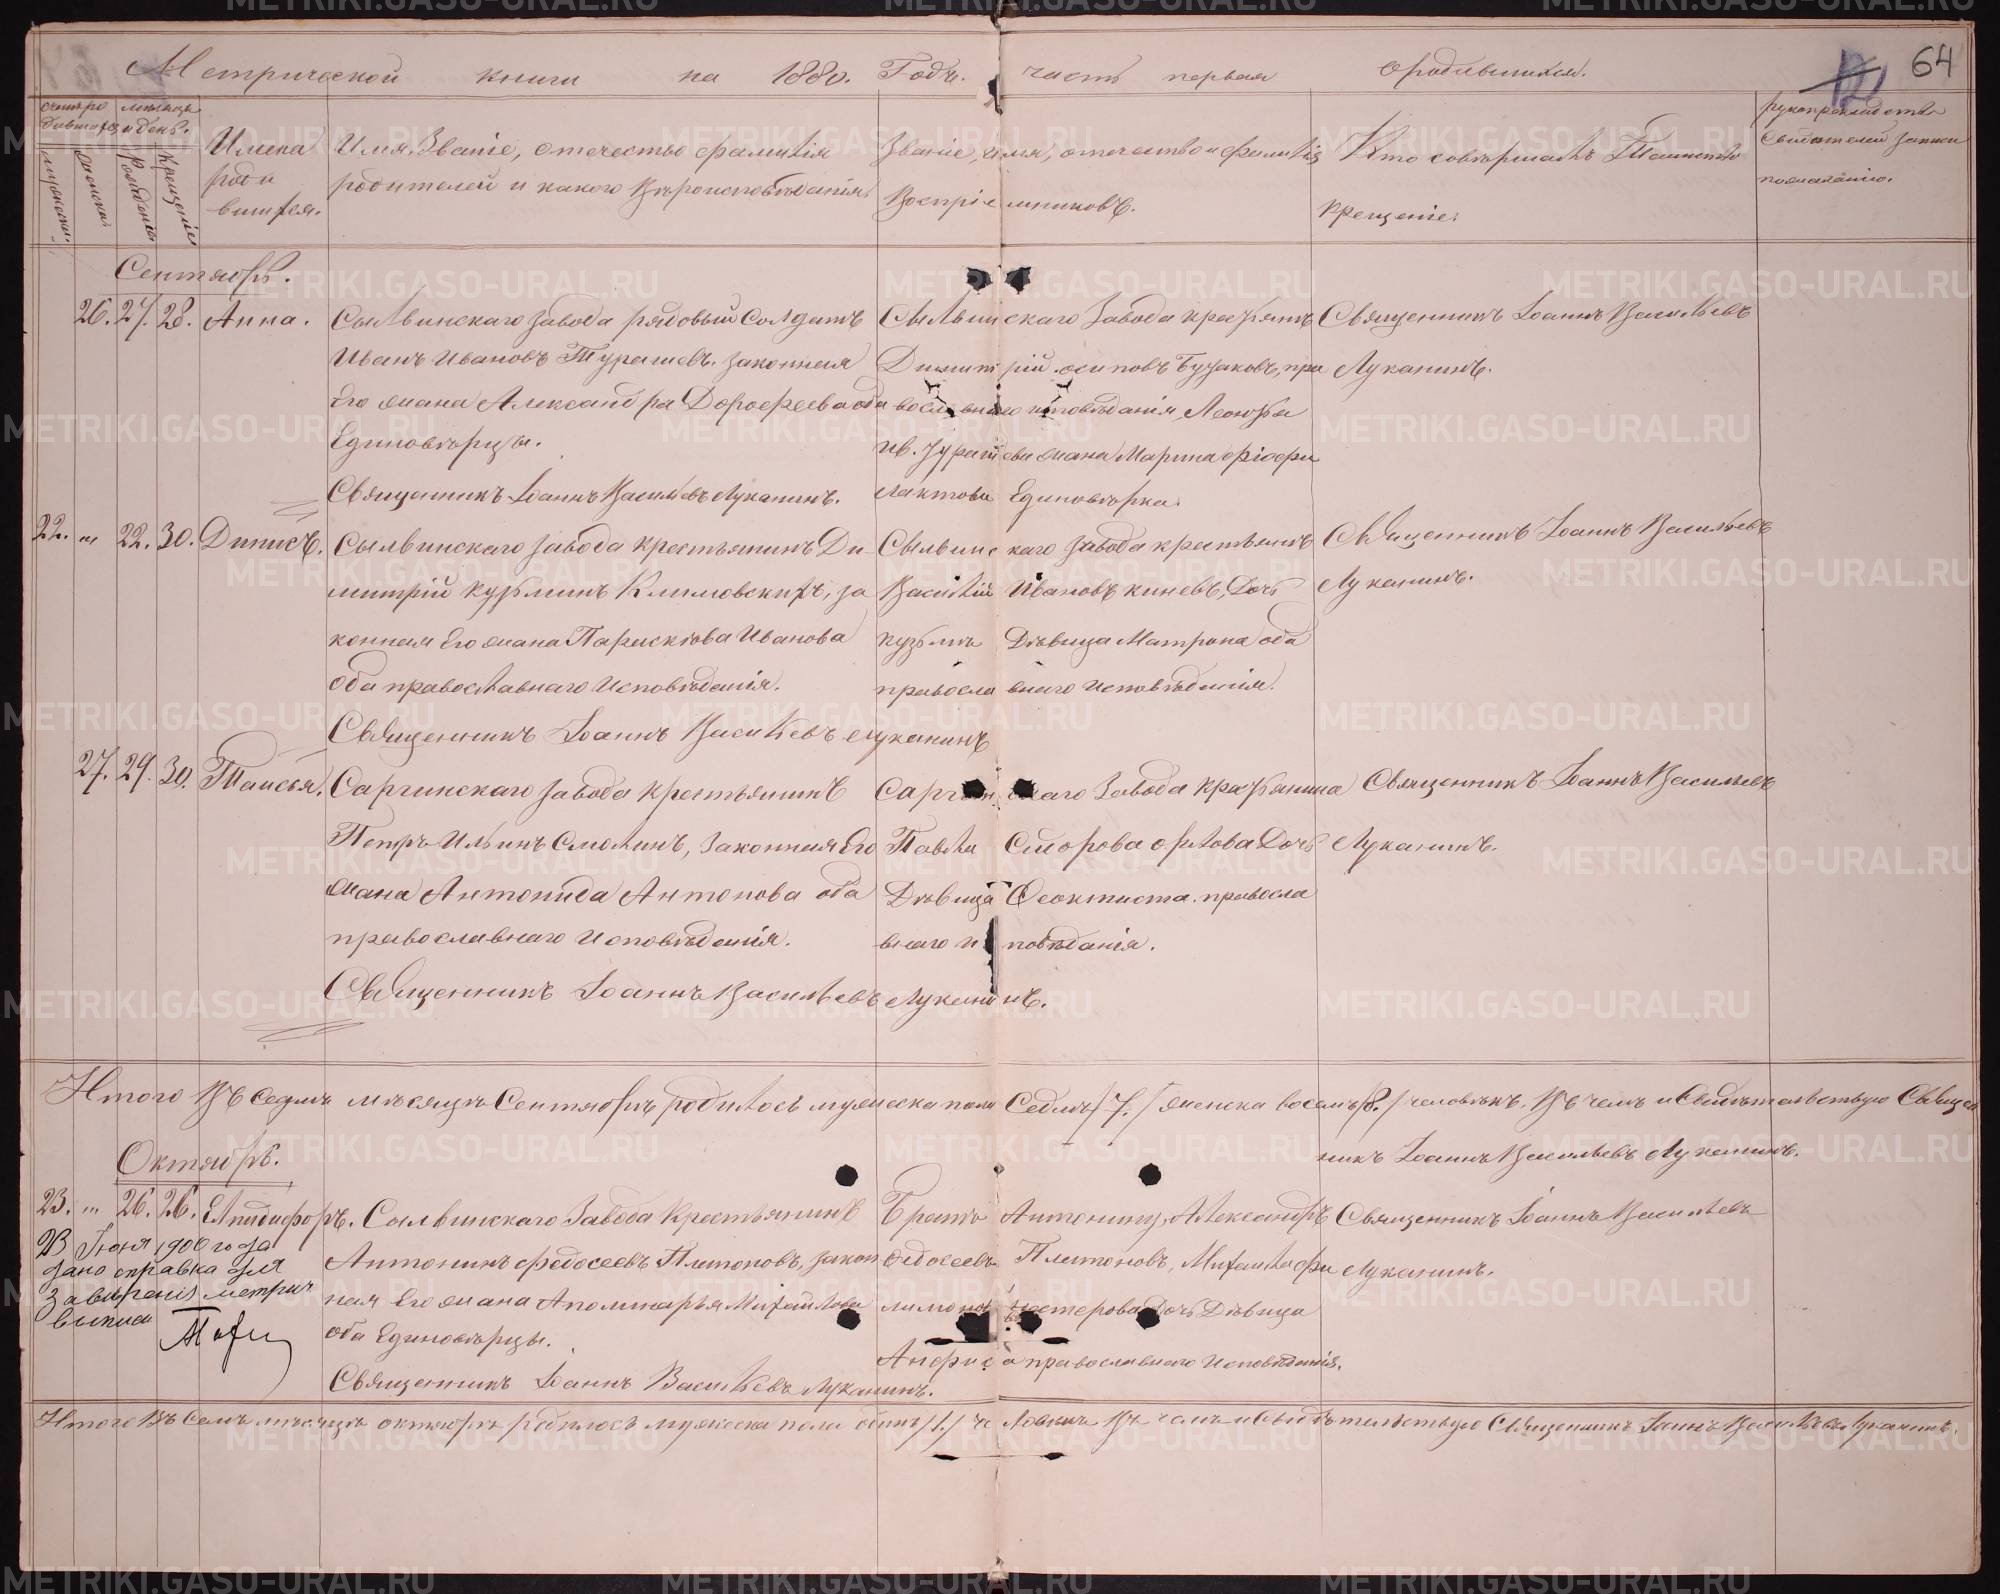 64
Метрической книги на 1880. Годъ. часть первая о родившихся.
Счетъ ро
дившихся
мѣсяцъ
и день.
мужеска.
женска.
рожденія
крещенія
Имена
роди
вшихся.
Имя, Званіе, отечество фамилія
родителей и какого Вѣроисповѣданія.
Званіе, имя, отечество и фамилія
Воспріемниковъ.
Кто совершалъ Таинство
Крещенія.
рукоприкладство
Свидетелей записи
по желанію.
Сентябрь.
26. 27. 28. Анна.
Сылвинскаго завода рядовый Солдатъ
Иванъ Ивановъ законная
Его жена Александра Дорофеева оба
Единовѣрцы.
Священникъ Іоаннъ Васильевъ Луканинъ.
Сылвинскаго Завода
Димитрій Осиповъ Бузаковъ, пра
вославнаго исповѣданія,
жена Марина
Единовѣрка.
Священникъ Іоаннъ Васильевъ
Луканинъ.
22. „ 22. 30. Дінисъ.
Сылвинскаго завода крестьянинъ Ди
митрій Кузьминъ Климовскихъ, за
конная Его жена Параскева Иванова
оба православнаго Исповѣданія.
Священникъ Іоаннъ Васильевъ Луканинъ
Сылвинскаго завода крестьянинъ
Василій Ивановъ Киневъ, Дочь
Дѣвица Матрона оба
православнаго исповѣданія.
Священникъ Іоаннъ Васильевъ
Луканинъ.
27. 29. 30. Таисья.
Саргинскаго завода крестьянинъ
Петръ Ильинъ Смолинъ, Законная Его
жена Антонида Антонова оба
православнаго Исповѣданія.
Священникъ Іоаннъ Васильевъ Луканинъ.
Саргинскаго Завода
Павла Орлова Дочь
Дѣвица Феоктиста. правосла
внаго
Священникъ Іоаннъ Васильевъ
Луканинъ.
Итого Въ Семъ мѣсяцѣ Сентябрѣ родилось мужеска пола Седмь /7./ женска восемь /8./ человѣкъ. Въ чемъ и Свидѣтельствую Священ
никъ Іоаннъ Васильевъ Луканинъ.
Октябрь.
23. „ 26. 26. Елпидифоръ.
23 Іюня 1906 года
дана справка для
завѣренія метрич
выписи
Сылвинскаго Завода Крестьянинъ
Антонинъ Федосеевъ Платоновъ, закон
ная Его жена Аполинарья Михайлова
оба Единовѣрцы.
Священникъ Іоаннъ Васильевъ Луканинъ.
Братъ Антонину, Александръ
Федосеевъ Платоновъ, Михаила Фи
лимонова Нестерова Дочь Дѣвица
Анфиса православнаго Исповѣданія.
Священникъ Іоаннъ Васильевъ
Луканинъ.
Итого Въ Семъ мѣсяцѣ октябрѣ родилось мужеска пола одинъ /1./ человѣкъ Въ чемъ и Свидѣтельствую Священникъ Іоаннъ Васильевъ Луканинъ.
METRIKI.GASO-URAL.RU